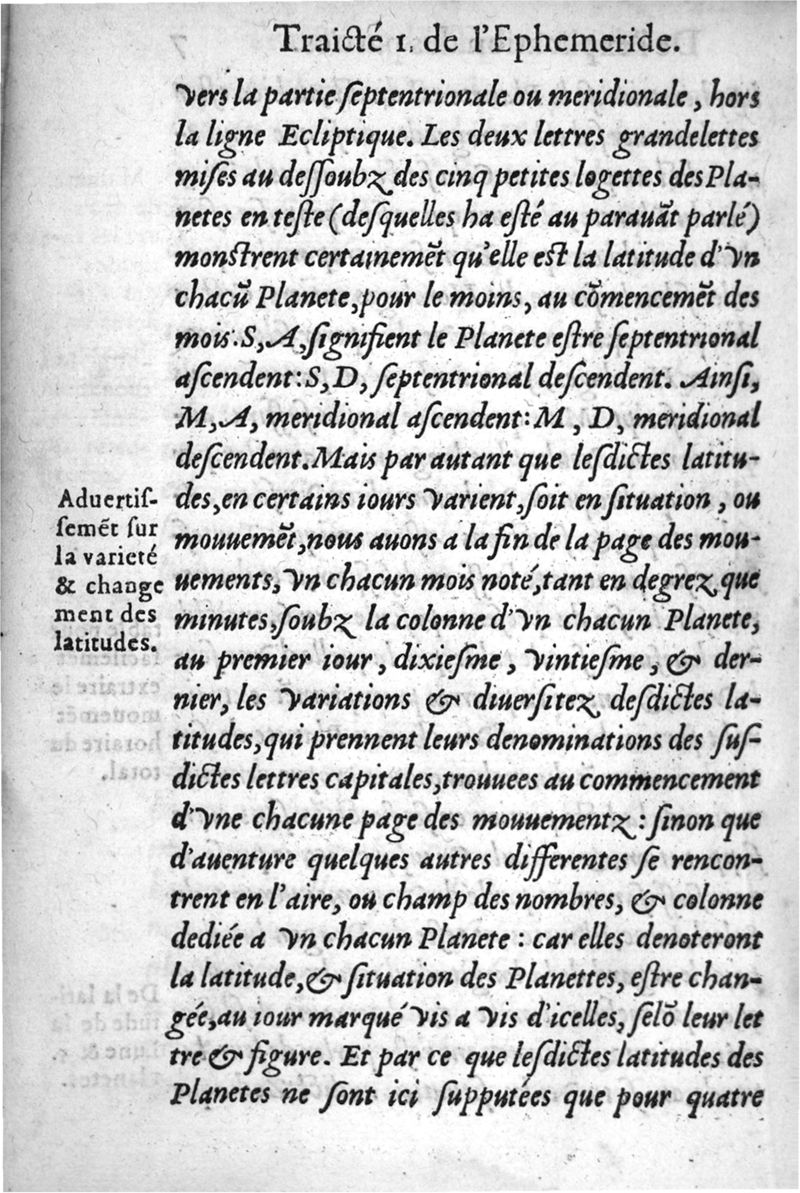 Traicté 1. de l'Ephemeride.
vers la partie ſeptentrionale ou meridionale, hors
la ligne Ecliptique. Les deux lettres grandelettes
miſes au deſſoubz des cinq petites logettes des Pla-
netes en teſte (deſquelles ha eſté au parauāt parlé)
monſtrent certainemēt qu'elle eſt la latitude d'vn
chacū Planete, pour le moins, au cōmencemēt des
mois. S, A, ſignifient le Planete eſtre ſeptentrional
aſcendent: S, D, ſeptentrional deſcendent. Ainſi,
M, A, meridional aſcendent: M, D, meridional
deſcendent. Mais par autant que leſdictes latitu-
des, en certains iours varient, ſoit en ſituation, ou
mouuemēt, nous auons a la fin de la page des mou-
uements, vn chacun mois noté, tant en degrez, que
minutes, ſoubz la colonne d'vn chacun Planete,
au premier iour, dixieſme, vintieſme, & der-
nier, les variations & diuerſitez deſdictes la-
titudes, qui prennent leurs denominations des ſuſ-
dictes lettres capitales, trouuees au commencement
d'vne chacune page des mouuementz: ſinon que
d'auenture quelques autres differentes ſe rencon-
trent en l'aire, ou champ des nombres, & colonne
dediée a vn chacun Planete: car elles denoteront
la latitude, & ſituation des Planettes, eſtre chan-
gée, au iour marqué vis a vis d'icelles, ſelō leur let
tre & figure. Et par ce que leſdictes latitudes des
Planetes ne ſont ici ſupputées que pour quatre
Aduertiſ-
ſemēt ſur
la varieté
& change
ment des
latitudes.